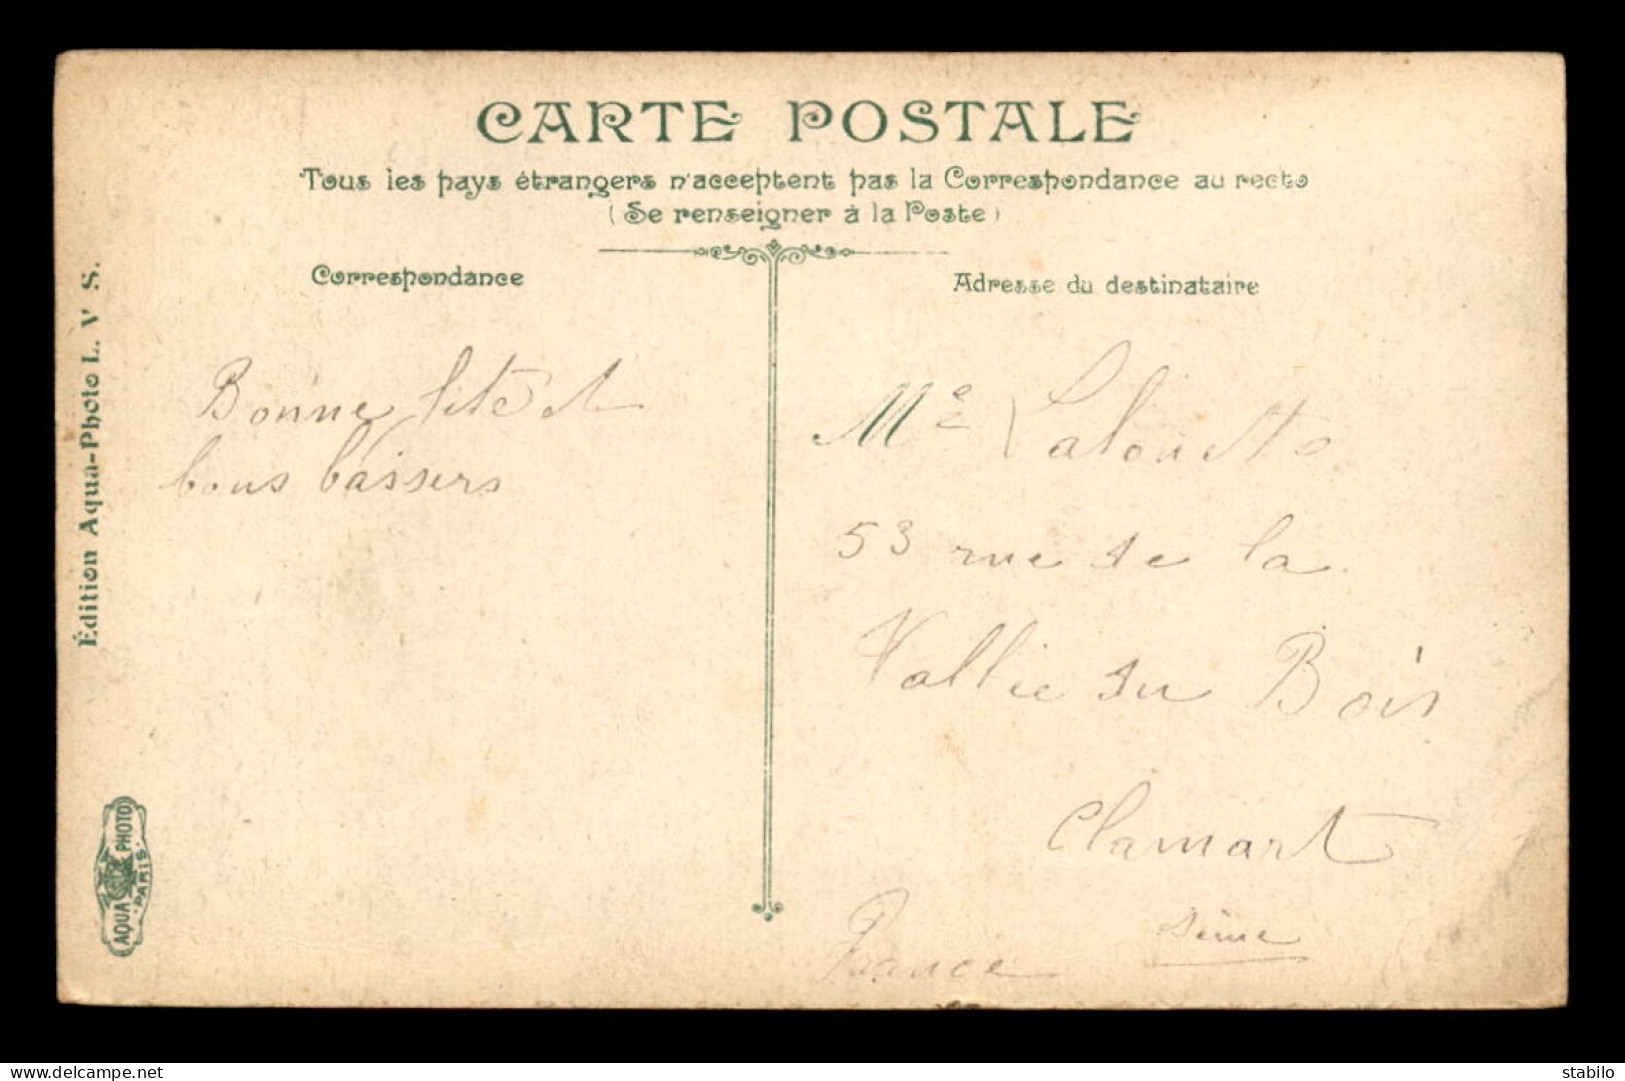 CARTE POSTALE
Tous les pays étrangers n'acceptent pas la Correspondance au recto
(Se renseigner à la Poste)
Correspondance
Adresse du destinataire
Bonne fête et
bons baisers
Me Lalouette
53 rue de la
Vallie du Bois
Clamart
Seine
France
Édition Aqua-Photo L. V S.
AQUA PHOTO
PARIS
www.delcampe.net
stabilo